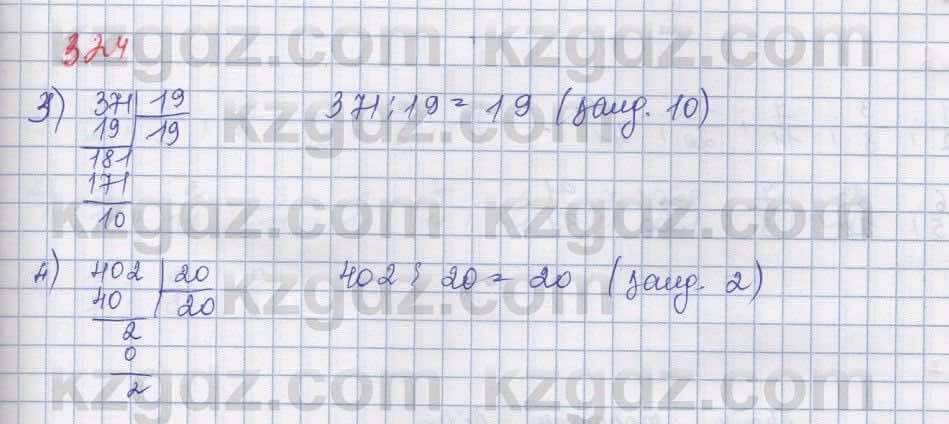 324
3) 371 | 19
19 | 19
181
171
10
371 : 19 = 19 (
. 10)
4) 402 | 20
40 | 20
2
0
2
402 : 20 = 20 (
. 2)
kzgdz.com kzgdz.com
kzgdz.com kzgdz.com
kzgdz.com kzgdz.com
kzgdz.com kzgdz.com
kzgdz.com kzgdz.com